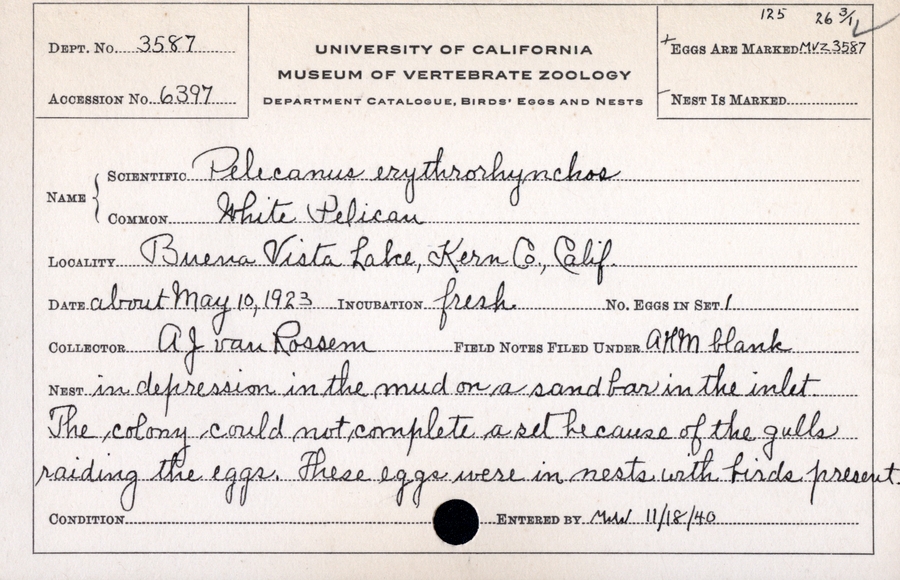 125 26 3/11
DEPT. NO. 3587
UNIVERSITY OF CALIFORNIA
MUSEUM OF VERTEBRATE ZOOLOGY
DEPARTMENT CATALOGUE, BIRDS' EGGS AND NESTS
EGGS ARE MARKED MVZ 3587
ACCESSION NO. 6397
NEST IS MARKED
NAME
SCIENTIFIC Pelecanus erythrorhynchos
COMMON White Pelican
LOCALITY Buena Vista Lake, Kern Co., Calif.
DATE about May 10, 1923 INCUBATION fresh NO. EGGS IN SET 1
COLLECTOR A J van Rossem FIELD NOTES FILED UNDER AHM blank
NEST in depression in the mud on a sand bar in the inlet.
The colony could not complete a set because of the gulls
raiding the eggs. These eggs were in nests with birds present.
CONDITION ENTERED BY 11/18/40